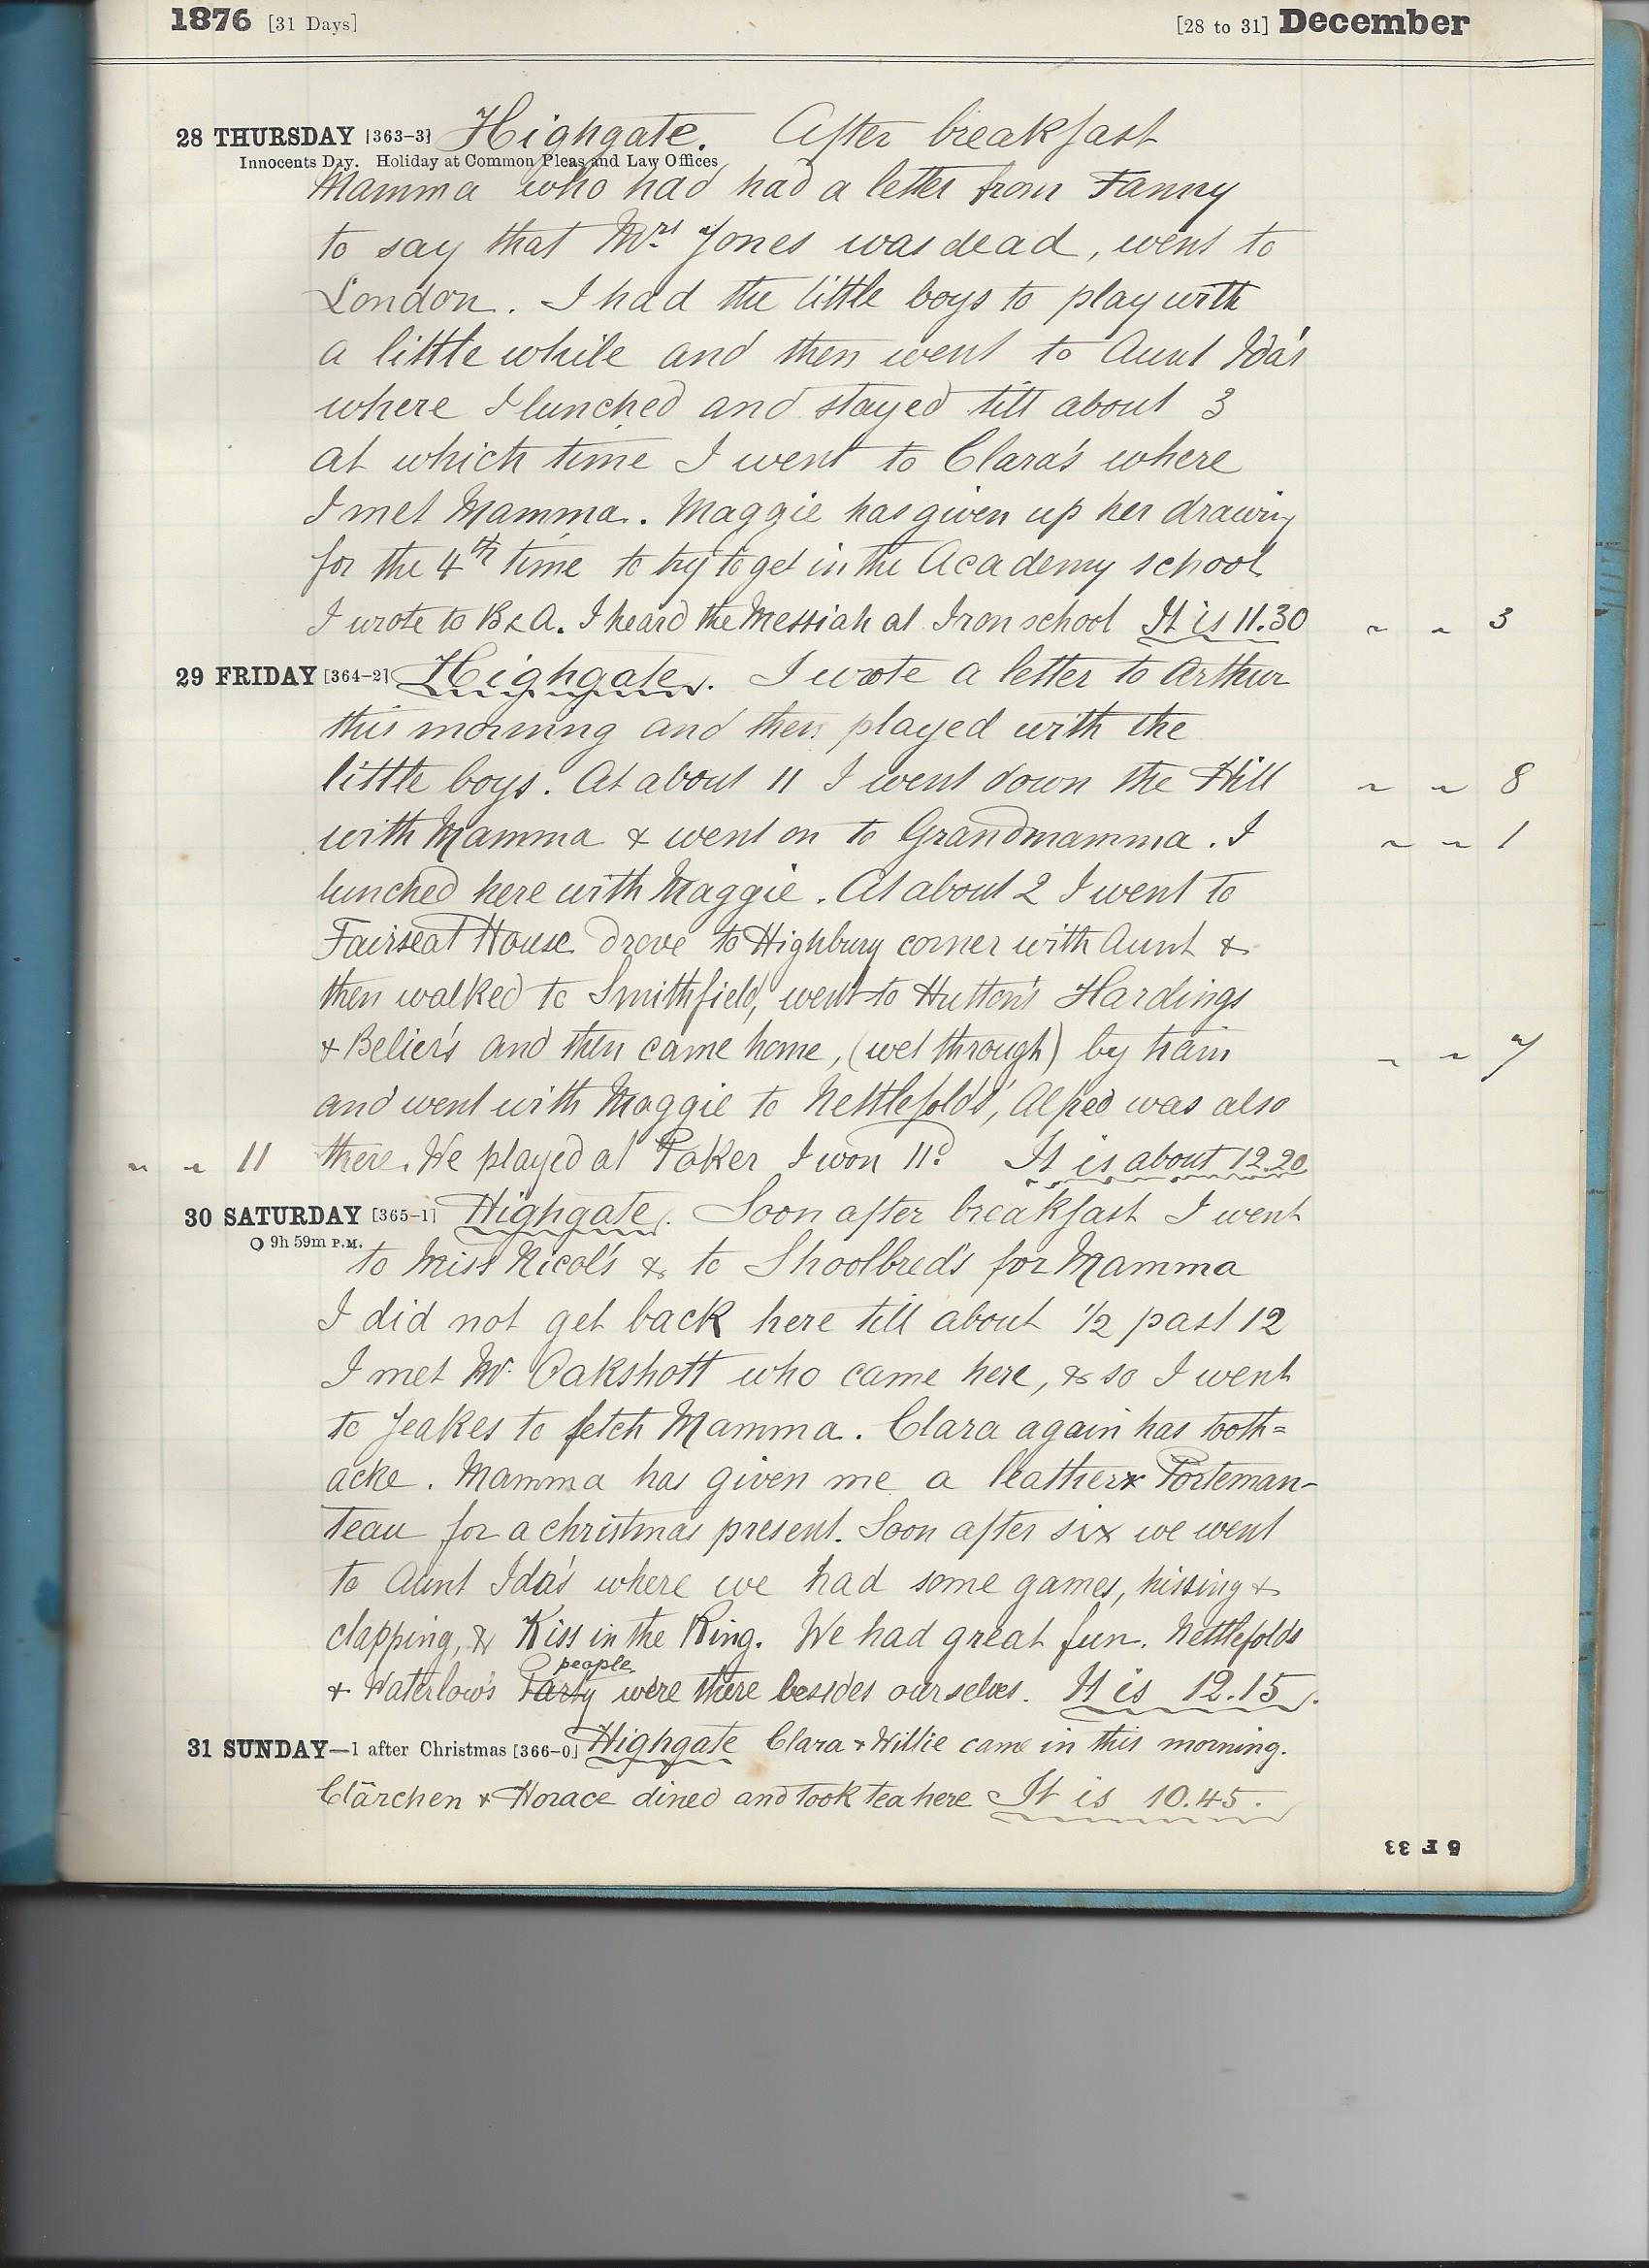 1876 [31 Days] [28 to 31] December
28 THURSDAY [363-3] Highgate. After breakfast
Innocents Day. Holiday at Common Pleas and Law Offices
Mamma who had had a letter from Fanny
to say that Mrs Jones was dead, went to
London. I had the little boys to play with
a little while and then went to Aunt Ida's
where I lunched and stayed till about 3
at which time I went to Clara's where
I met Mamma. Maggie has given up her drawing
for the 4th time to try to get in the Academy school
I wrote to B & A. I heard the Messiah at Iron school It is 11.30 ~ ~ 3
29 FRIDAY [364-2] Highgate. I wrote a letter to Arthur
this morning and then played with the
little boys. At about 11 I went down the Hill ~ ~ 8
with Mamma & went on to Grandmamma. I ~ ~ 1
lunched here with Maggie. At about 2 I went to
Fairseat House drove to Highbury corner with Aunt &
then walked to Smithfield, went to Hutton's Hardings
& Belier's and then came home, (wet through) by train ~ ~ 7
and went with Maggie to Nettlefold's, Alfred was also
~ ~ 11 there. We played at Poker I won 11d It is about 12.20
30 SATURDAY [365-1] Highgate. Soon after breakfast I went
9h 59m P.M.
to Miss Nicol's & to Shoolbred's for Mamma
I did not get back here till about 1/2 past 12
I met Mr. Oakshott who came here, & so I went
to Jeakes to fetch Mamma. Clara again has tooth=
acke. Mamma has given me a leather Porteman-
teau for a christmas present. Soon after six we went
to Aunt Ida's where we had some games, kissing &
clapping, & Kiss in the Ring. We had great fun. Nettlefolds
people
& Waterlow's Party were there besides ourselves. It is 12.15.
31 SUNDAY—1 after Christmas [366-0] Highgate Clara & Willie came in this morning.
Clärchen & Horace dined and took tea here It is 10.45.
5 F 33